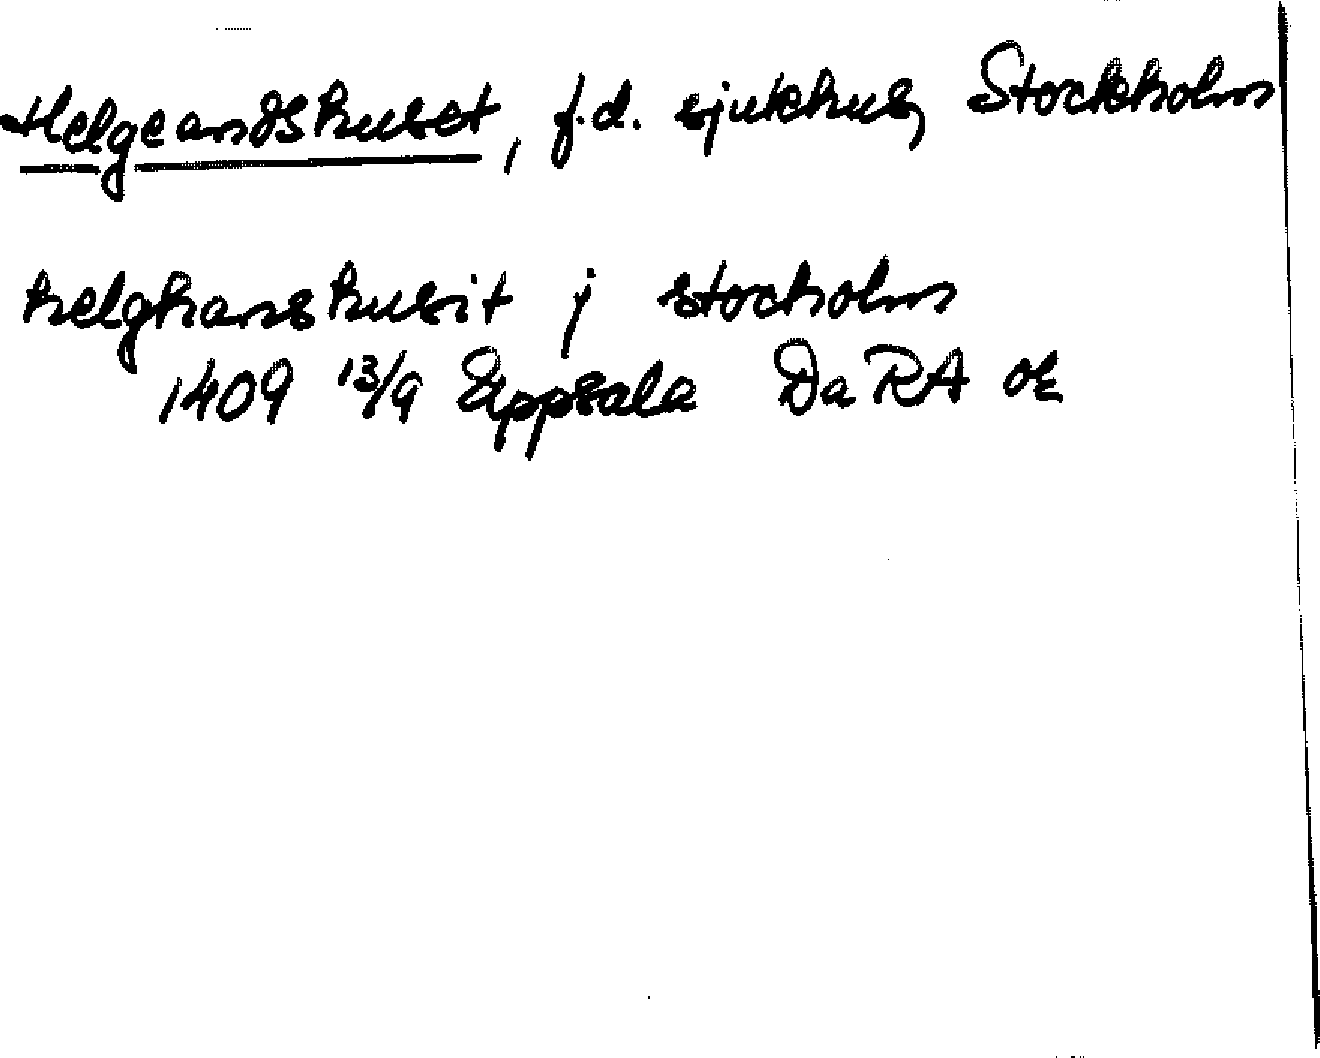 Helgeandshuset, f.d. sjukhus, Stockholm
helghanshusit j stocholm
1409 13/9 Uppsala Da RA or